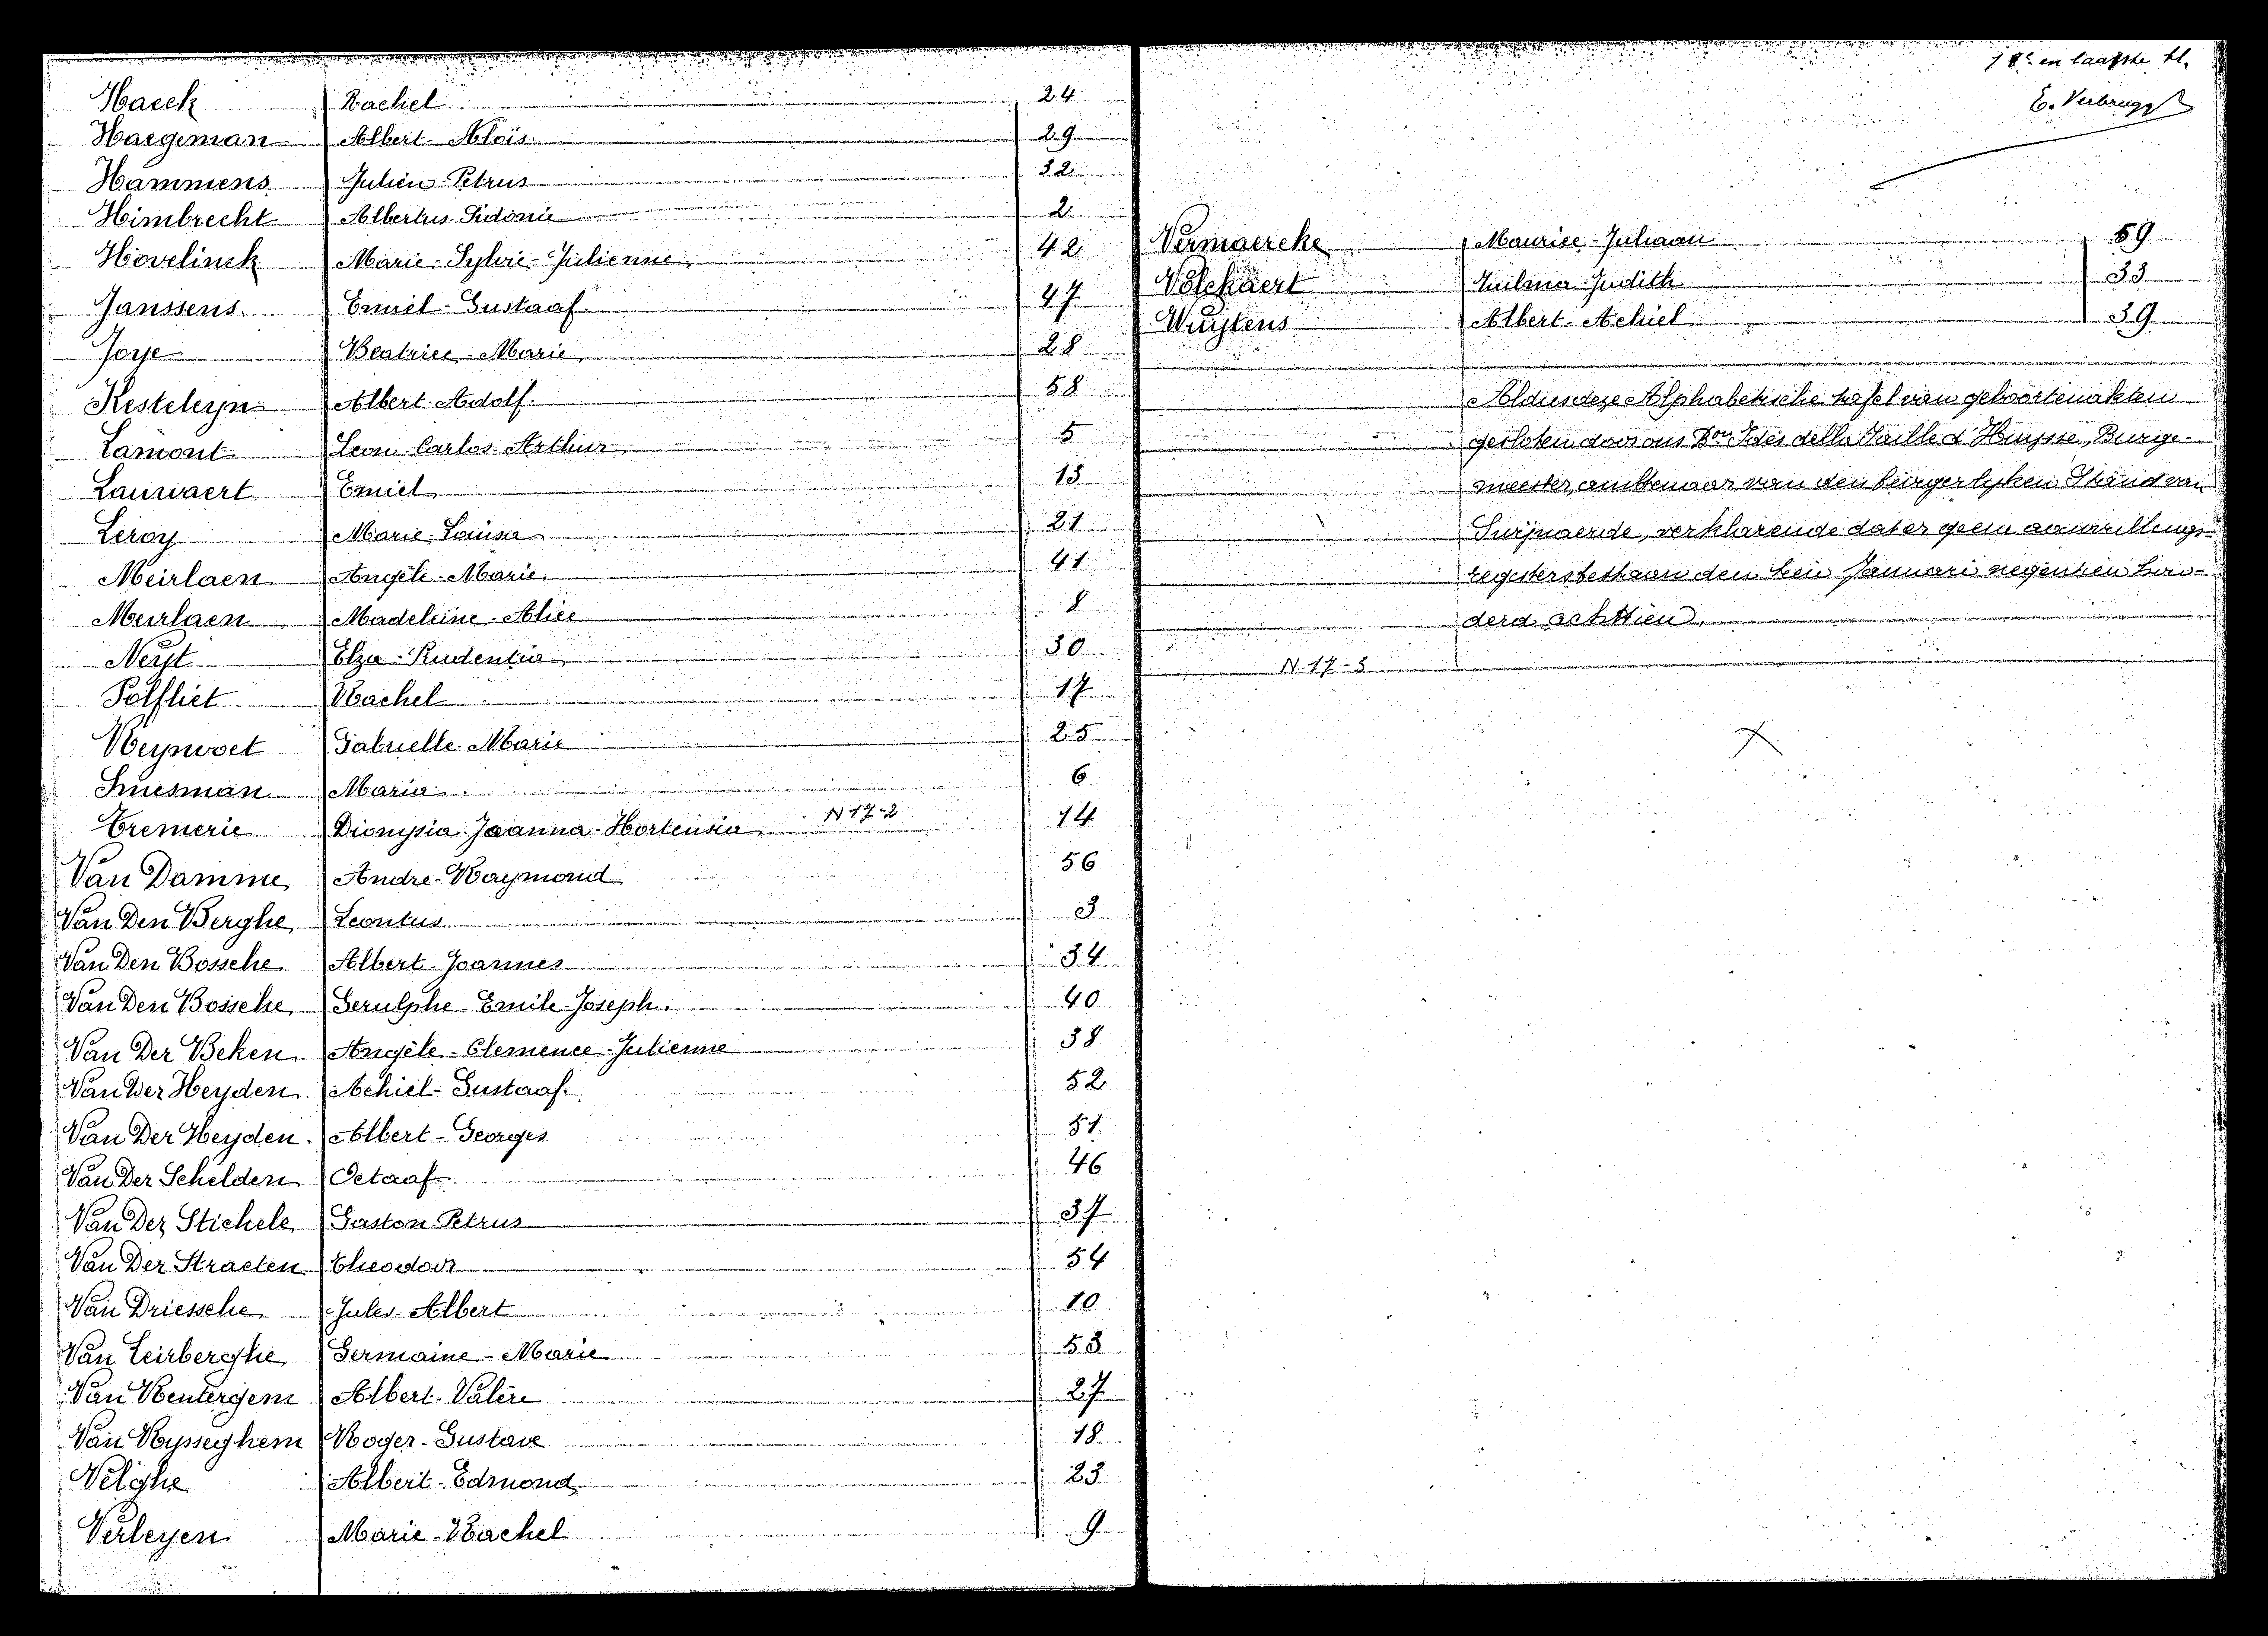 Haeck Rachel 24
Haegeman Albert-Aloïs 29
Hammens Julien-Petrus 32
Himbrecht Albertus-Sidonie 2
Hovelinck Marie-Sylvie-Julienne 42
Janssens Emiel-Gustaaf. 47
Joye Beatrice-Marie 28
Kesteleyn Albert-Adolf. 58
Lamont Leon-Carlos-Arthur 5
Lauwaert Emiel 13
Leroy Marie-Louisa 21
Meirlaen Angèle-Marie 41
Meirlaen Madeleine-Alice 8
Neyt Elza-Prudentia 30
Polfliet Rachel 17
Reynvoet Gabrielle-Marie 25
Snesman Maria 6
Tremerie Dionysia-Joanna-Hortensia N 17-2 14
Van Damme Andre-Raymond 56
Van Den Berghe Leontus 3
Van Den Bossche Albert-Joannes 34
Van Den Bossche Gerulphe-Emile-Joseph. 40
Van Der Beken Angèle-Clemence-Julienne 38
Van Der Heyden Achiel-Gustaaf. 52
Van Der Heyden Albert-Georges 51
Van Der Schelden Octaaf 46
Van Der Stichele Gaston-Petrus 37
Van Der Straeten Theodoor 54
Van Driessche Jules-Albert 10
Van Leirberghe Germaine-Marie 53
Van Rentergem Albert-Valère 27
Van Rysseghem Roger-Gustave 18
Velghe Albert-Edmond 23
Verleyen Marie-Rachel 9
18e en laatste bl.
E. Verbrugg
Vermaercke Maurice-Juliaan 59
Volckaert Zulma-Judith 33
Wuytens Albert-Achiel 39
Aldus deze Alphabetische tafel van geboortenakten
gesloten door ons Bon Idès della Faille d'Huysse, Burge-
meester, ambtenaar van den burgerlyken Stand van
Deurle, verklarende dat er geen aanvullings-
registers bestaan den tein Januari negentien hon-
derd achttien.
N. 17-3